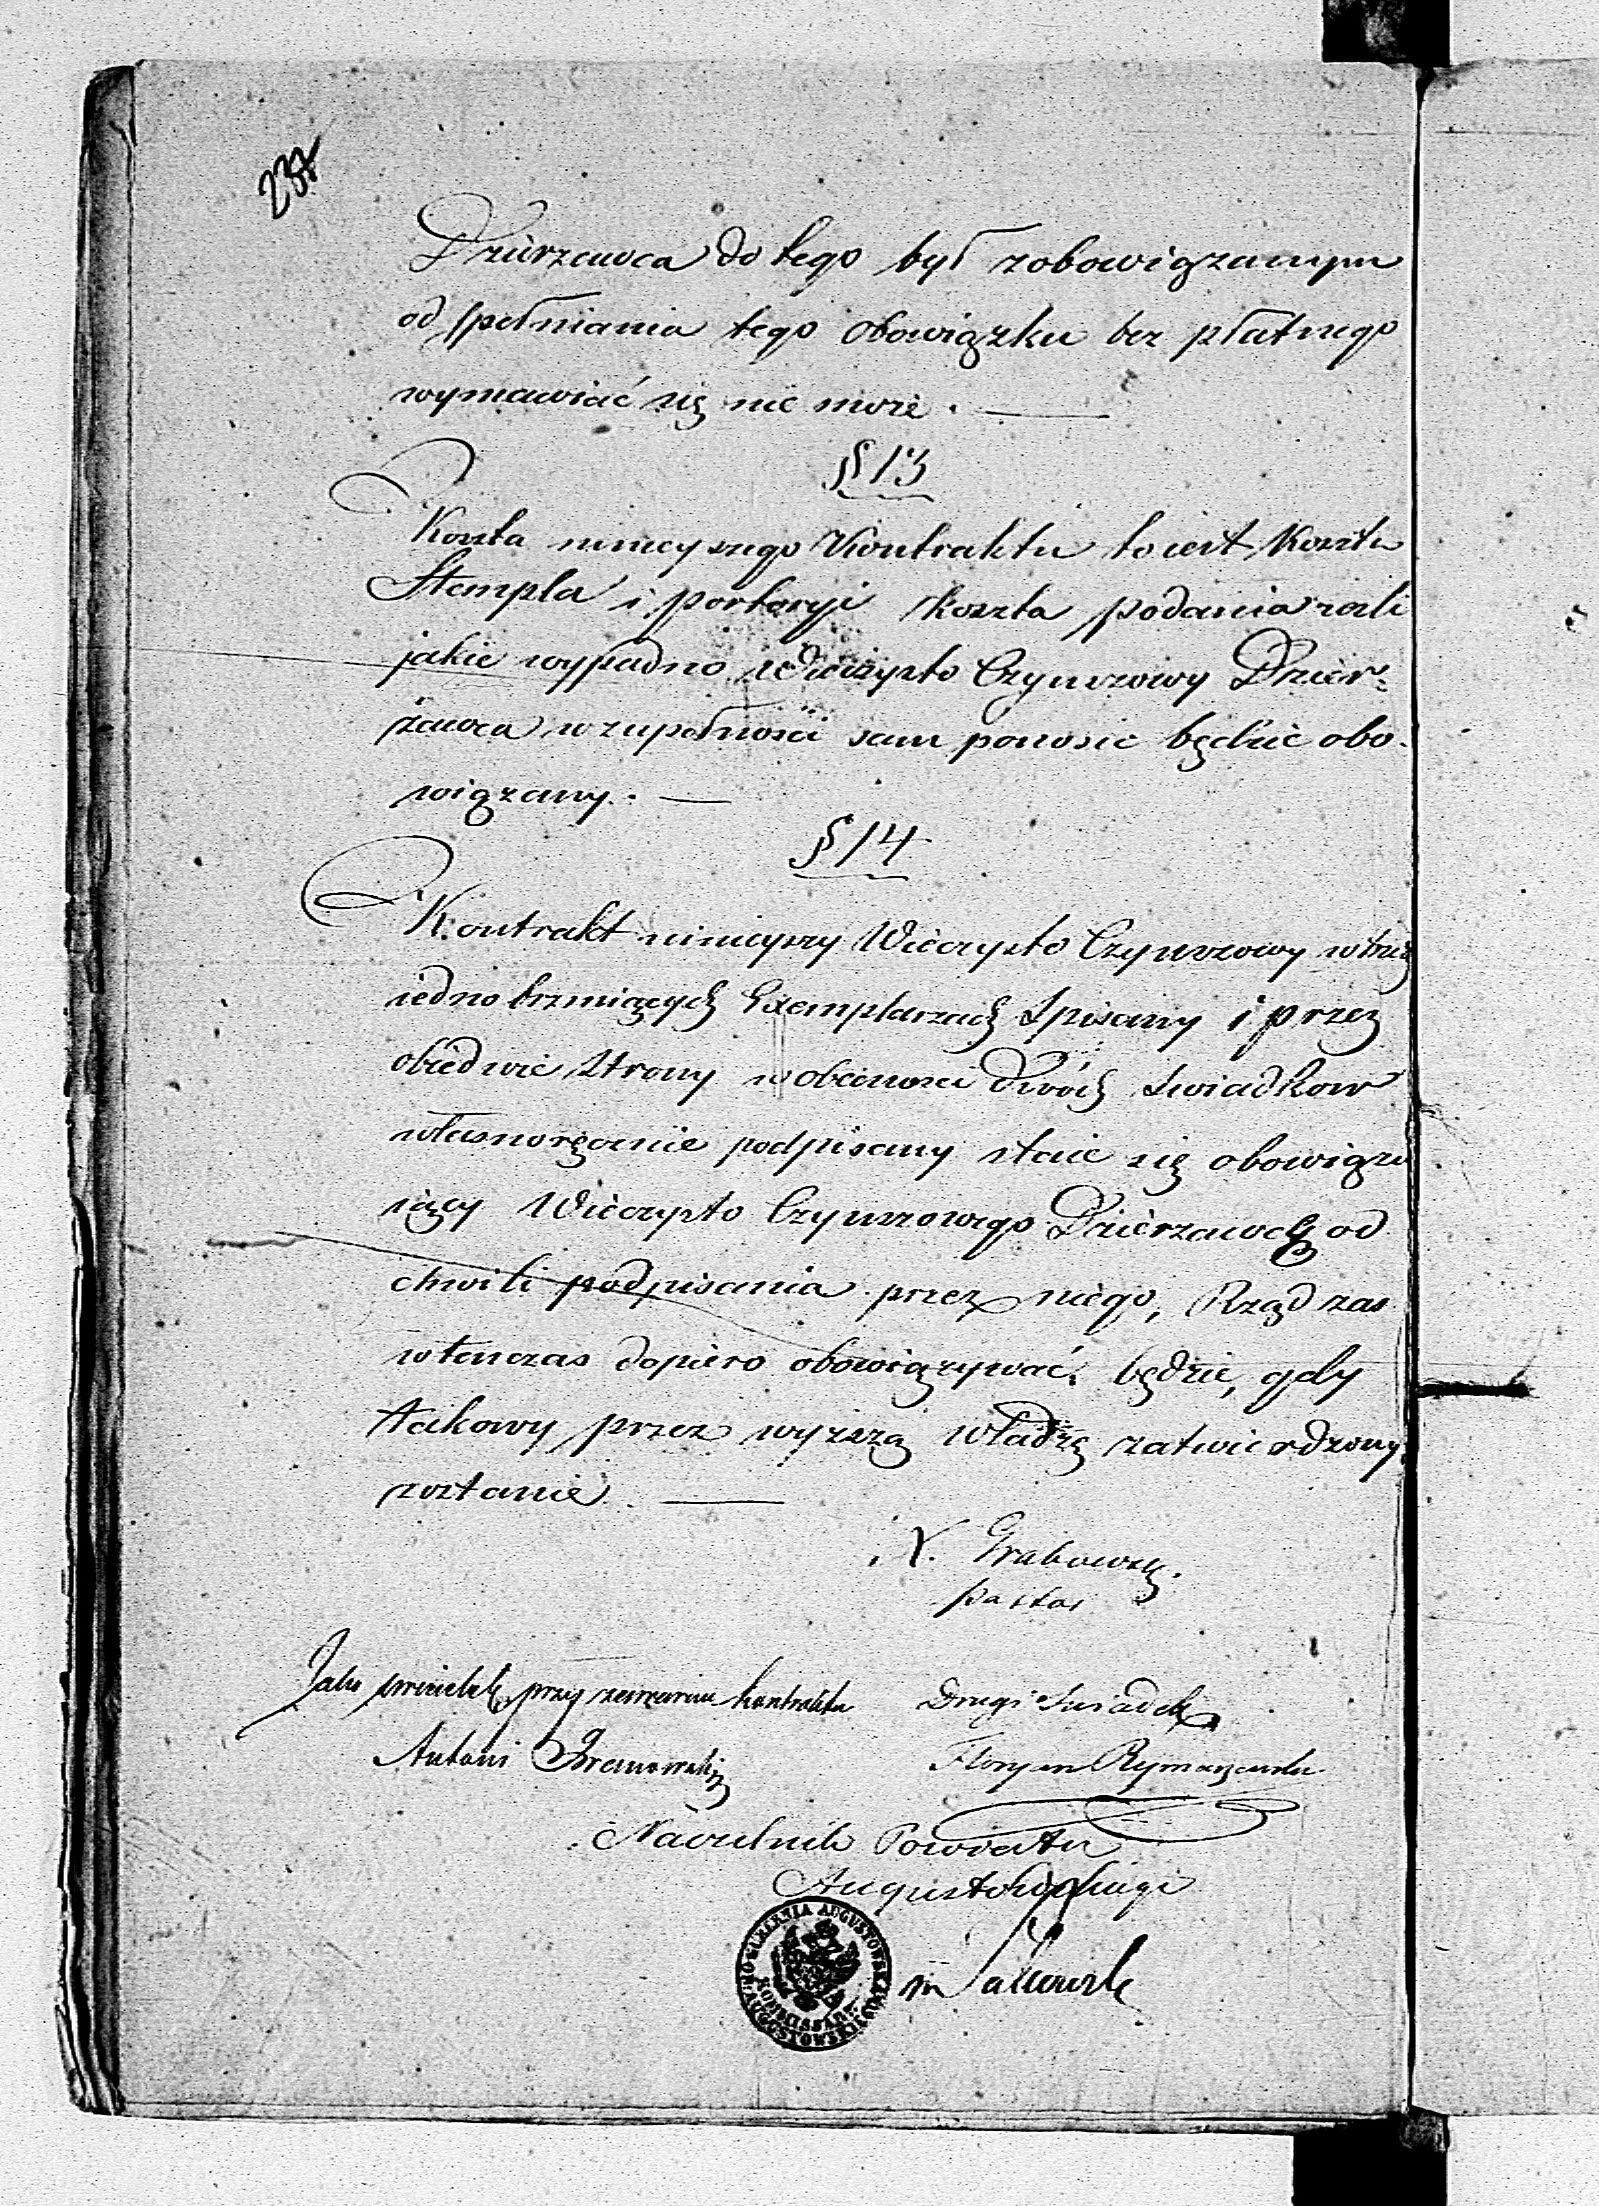 237
Dzierzawca do tego był zobowiązanym
od spełniania tego obowiązku bez płatnego
wymawiać się nie może. —
§ 13
Koszta ninieyszego Kontraktu to iest, Koszta
Stempla i portoryi koszta podania
jakie wypadno, Wieczysto Czynszowy Dzier-
żawca w zupełnosci sam ponosic będzie obo-
wiązany. —
§ 14
Kontrakt ninieyszy Wieczysto Czynszowy w trzech
iedno brzmiących Exemplarzach Spisany i przez
obiedwie Strony w obecnosci dwóch Swiadkow
własnoręcznie podpisany staie się obowiązu
iący Wieczysto Czynszowego Dzierzawcę od
chwili podpisania przez niego, Rząd zas
wtenczas dopiero obowiązywać będzie, gdy
takowy przez wyzszą władzę zatwierdzony
zostanie. —
Grabowski
Jako swiadek przy zawarciu kontraktu
Drugi Swiadek
Antoni
Floryan Rymaszewski
Naczelnik Powiatu
Augustowskiego